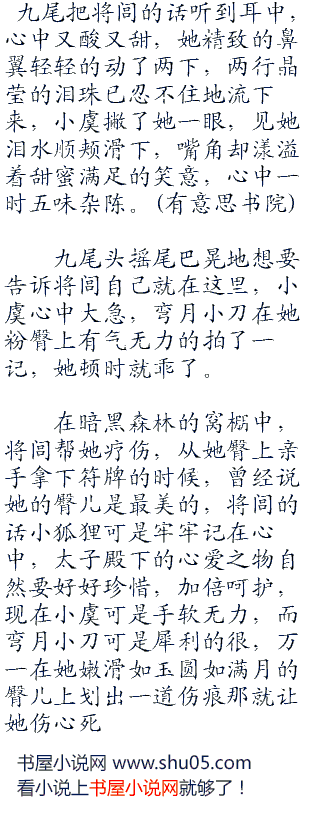 九尾把将闾的话听到耳中，
心中又酸又甜，她精致的鼻
翼轻轻的动了两下，两行晶
莹的泪珠已忍不住地流下
来，小虞撇了她一眼，见她
泪水顺颊滑下，嘴角却漾溢
着甜蜜满足的笑意，心中一
时五味杂陈。(有意思书院)
九尾头摇尾巴晃地想要
告诉将闾自己就在这里，小
虞心中大急，弯月小刀在她
粉臀上有气无力的拍了一
记，她顿时就乖了。
在暗黑森林的窝棚中，
将闾帮她疗伤，从她臀上亲
手拿下符牌的时候，曾经说
她的臀儿是最美的，将闾的
话小狐狸可是牢牢记在心
中，太子殿下的心爱之物自
然要好好珍惜，加倍呵护，
现在小虞可是手软无力，而
弯月小刀可是犀利的很，万
一在她嫩滑如玉圆如满月的
臀儿上划出一道伤痕那就让
她伤心死
书屋小说网 www.shu05.com
看小说上书屋小说网就够了！